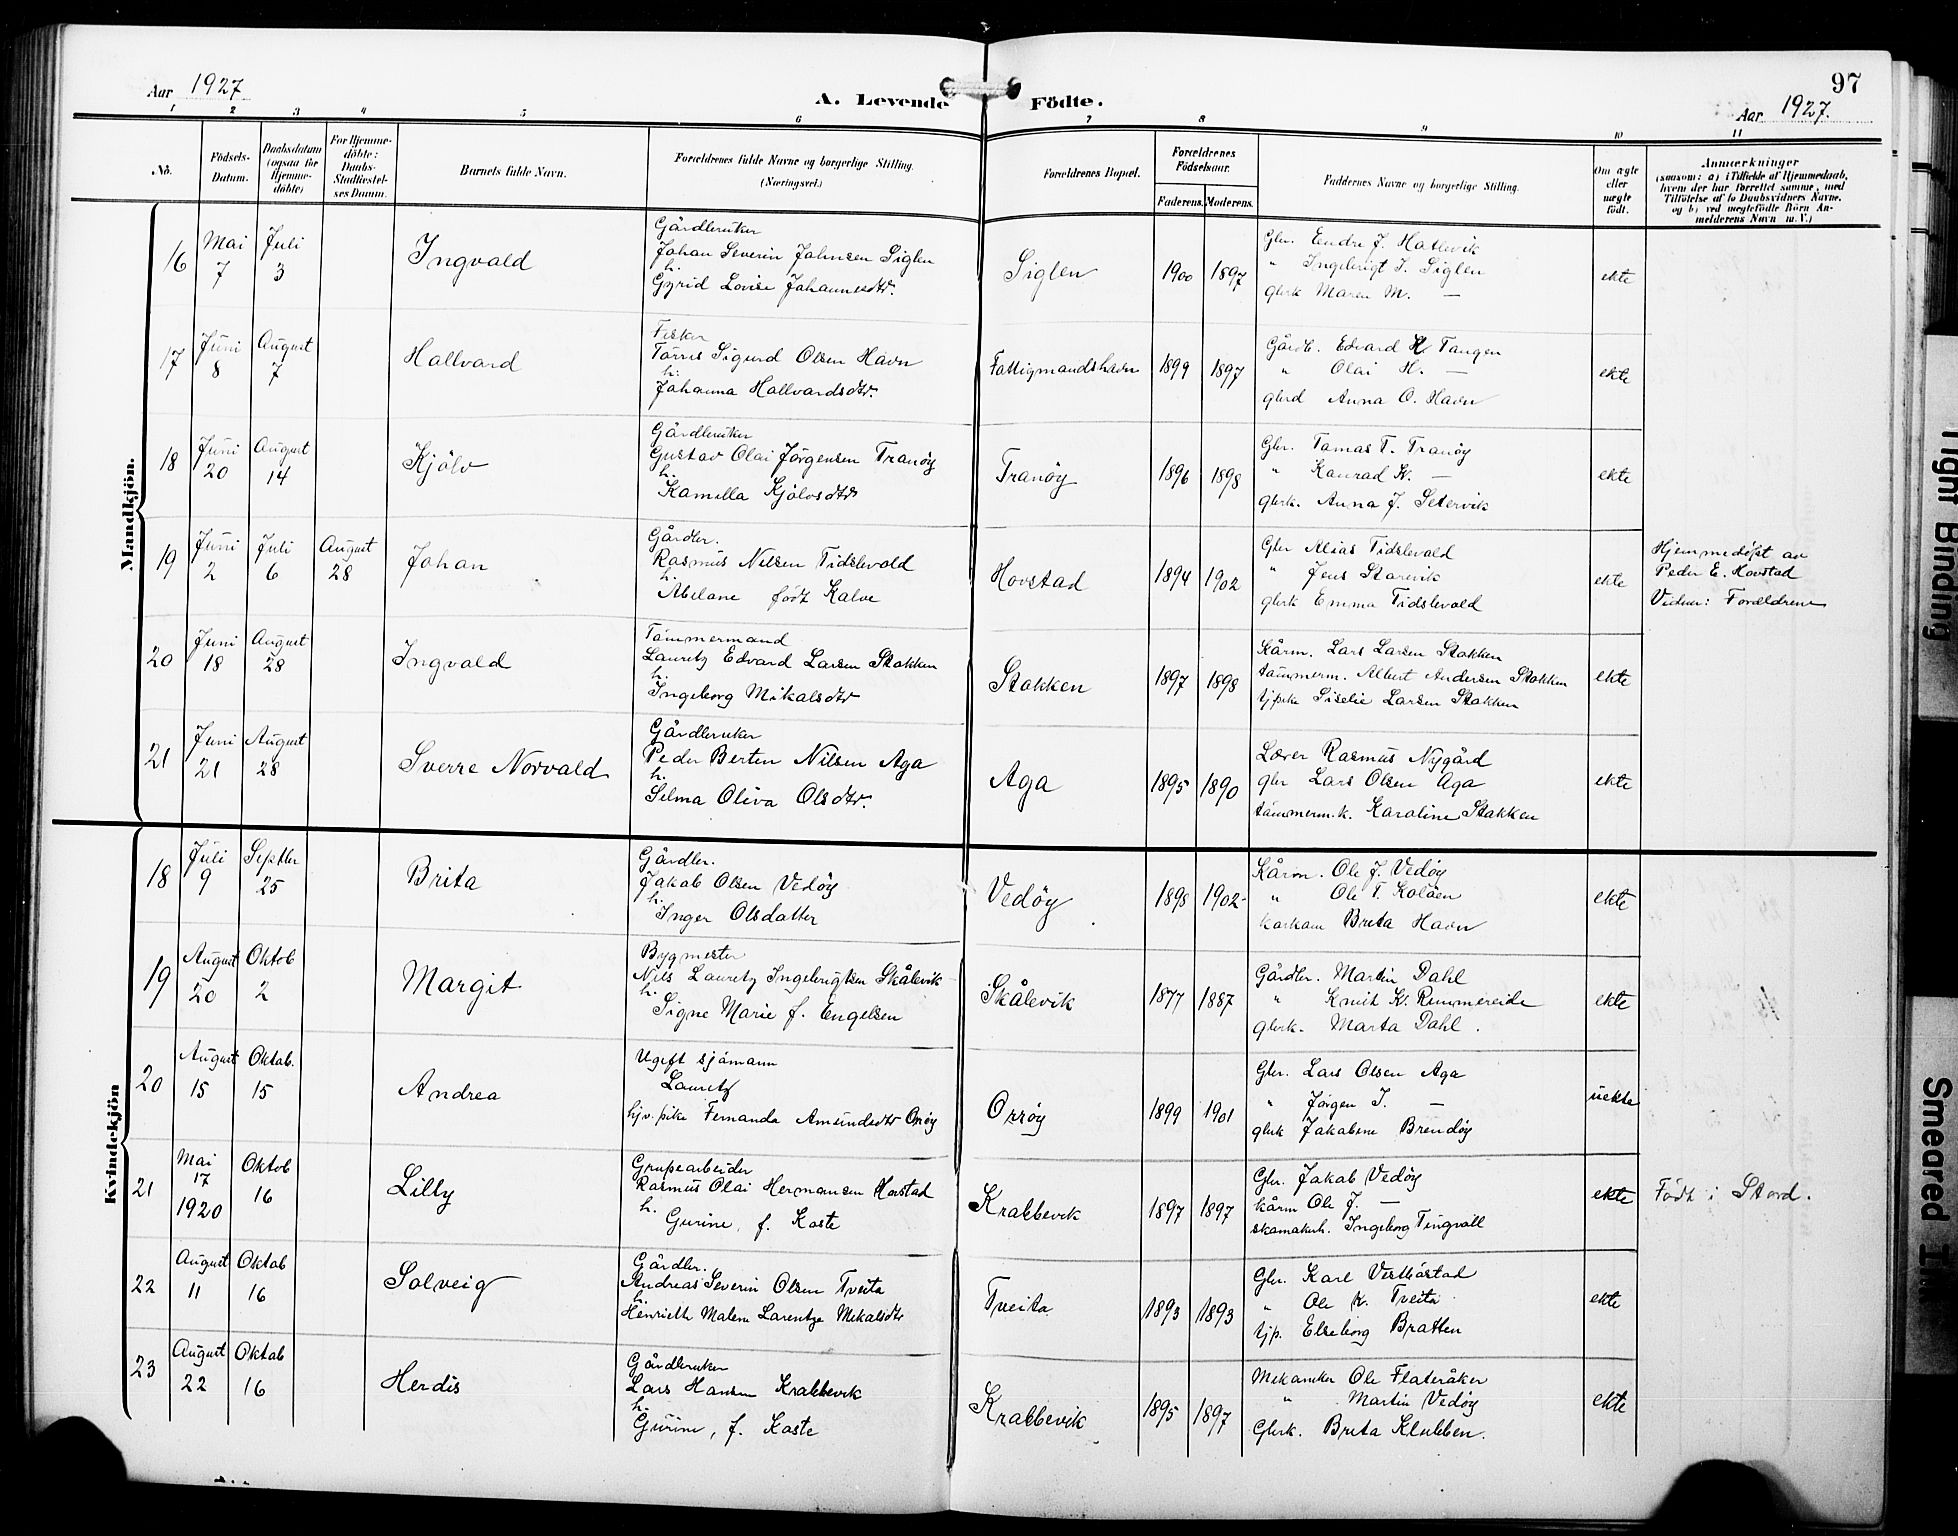 Aar 1927
A. Levende Födte.
97
Aar 1927.
1 2 3 4 5 6 7 8 9 10 11
No.
Födsels-Datum.
Daabsdatum (ogsaa for Hjemme-döbte)
For Hjemme-döbte: Daabs-Stadfæstel-ses Datum.
Barnets fulde Navn.
Forældrenes fulde Navne og borgerlige Stilling. (Næringsvei.)
Forældrenes Bopæl.
Forældrenes Födselsaar.
Faderens. Moderens.
Faddernes Navne og borgerlige Stilling.
Om ægte eller uægte födt.
Anmærkninger
(saasom: a) i Tilfælde af Hjemmedaab,
hvem der har forrettet samme, med
Tilföielse af to Daabsvidners Navne,
og b) ved uægtefödte Börn An-
melderens Navn m. V.)
Mandkjön.
16 Mai 7 Juli 3 Ingvald
Gårdbruker
Johan Severin Johnsen Siglen
h.
Gyrid Lovise Johannesdtr.
Siglen 1900 1897
Gbr. Endre J. Hatlevik
" Ingebrigt J. Siglen
gbrk Maren M. —
ekte
17 Juni 8 August 7 Hallvard
Fisker
Tørres Sigurd Olsen Havn
h.
Johanna Hallvardsdtr.
Fattigmandshavn 1899 1897
Gårdb. Edvard H. Tangen
" Olai H. —
gbrd Anna O. Havn
ekte
18 Juni 20 August 14 Kjölv
Gårdbruker
Gustav Olai Jørgensen Tranöy
h.
Kamilla Kjölvsdtr
Tranöy 1896 1898
Gbr. Tomas T. Tranöy
" Konrad K. —
gbrk. Anna J. Setervik
ekte
19 Juni 2 Juli 6 August 28 Johan
Gårdbr.
Rasmus Nilsen Tidslevold
h.
Abelane født Kalve
Hovstad 1894 1902
Gbr Alias Tidslevold
" Jens Starevik
gbrk Emma Tidslevold
ekte
Hjemmedøpt av
Peder E. Hovstad
Vidner: Forældrene
20 Juni 18 August 28 Ingvald
Tømmermand
Lauritz Edvard Larsen Stokken
h.
Ingeborg Mikalsdtr
Stokken 1897 1898
Kårm. Lars Larsen Stokken
tømmerm. Albert Andersen Stokken
tjpike Siselie Larsen Stokken
ekte
21 Juni 21 August 28 Sverre Norvald
Gårdbruker
Peder Berten Nilsen Aga
h.
Selma Oliva Olsdtr.
Aga 1895 1890
Lærer Rasmus Nygård
gbr Lars Olsen Aga
tømmerm.k. Karoline Stokken
ekte
Kvindekjön
18 Juli 9 Septbr 25 Brita
Gårdbr.
Jakob Olsen Vedöy
h.
Inger Olsdatter
Vedöy 1898 1902
Kårm. Ole J. Vedöy
" Ole T. Koløen
Brita Havn
ekte
19 August 20 Oktob 2 Margit
Bygmester
Nils Lauritz Ingebrigtsen Skålevik
h.
Signe Marie f. Engelsen
Skålevik 1877 1887
Gårdbr. Martin Dahl
" Knut K. Rimmereide
gbrk. Marta Dahl.
ekte
20 August 15 Oktob. 15 Andrea
Ugift sjømann
Lauritz
hjv. pike Fernanda Amundsdtr Orröy
Orröy 1899 1901
Gbr. Lars Olsen Aga
" Jørgen J. —
gbrk Jakobine Brendöy
uekte
21 Mai 17 1920 Oktob 16 Lilly
Grubearbeider
Rasmus Olai Hermansen Hovstad
h.
Gurine, f. Koste
Krabbevik 1897 1897
Gbr. Jakob Vedöy
kårm Ole J. —
skomakerh. Ingeborg Tingvoll
ekte
Født i Stord.
22 August 11 Oktob 16 Solveig
Gårdbr.
Andreas Severin Olsen Tveita
h.
Henriette Malene Larentze Mekalsdtr
Tveita 1893 1893
Gbr. Karl Vestbøstad
" Ole K. Tveita
tjp. Elseborg Bratten
ekte
23 August 22 Oktob 16 Herdis
Gårdbruker
Lars Hansen Krabbevik
h.
Gurine, f. Koste
Krabbevik 1895 1897
Mekaniker Ole Flateråker
" Martin Vedöy
Gbrk. Brita Klubben.
ekte
Tight Binding
Smeared